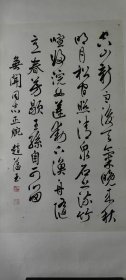 空山新雨後天氣晚來秋
明月松間照清泉石上流竹
喧歸浣女蓮動下漁舟隨
意春芳歇王孫自可留
無聞同志正腕